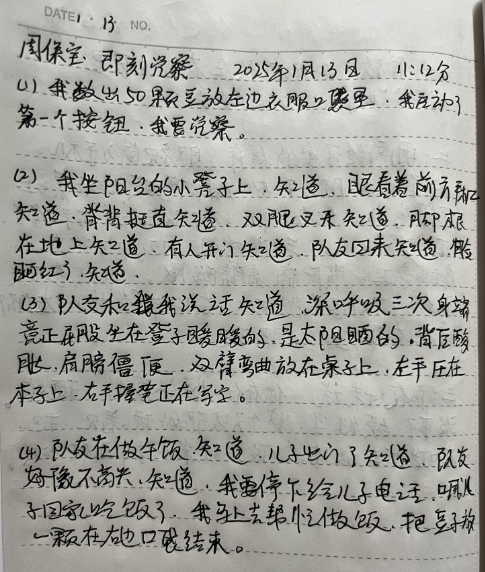 DATE 1 · 13 NO.
周保宝: 即刻觉察 2025年1月13日 11:12分
(1) 我数出50颗豆放左边衣服口袋里. 我启动了
第一个按钮. 我要觉察。
(2) 我坐阳台的小凳子上. 知道. 眼看着前方
知道. 背背挺直知道. 双腿叉来知道. 脚根
在地上知道. 有人开门知道. 队友回来知道. 脸
晒红了. 知道.
(3) 队友和我说话知道. 深呼吸三次身端
竟正屁股坐在凳子暖暖的. 是太阳晒的. 背后酸
胀. 肩膀僵便. 双臂弯曲放在桌子上. 左手压在
本子上. 右手握笔正在写字。
(4) 队友在做午饭. 知道. 儿子出门了知道. 队友
好像不高兴. 知道. 我要停下给儿子电话. 叫儿
子回家吃饭了. 我马上去帮忙做饭. 把豆子放
一颗在右边口袋结束。